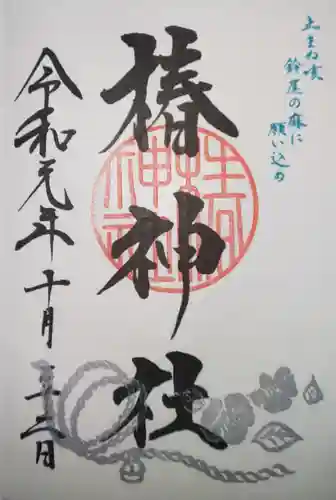 玉まわ喰
鈴尾の麻に
願い込め
椿神社
椿神社
令和元年十月二十二日